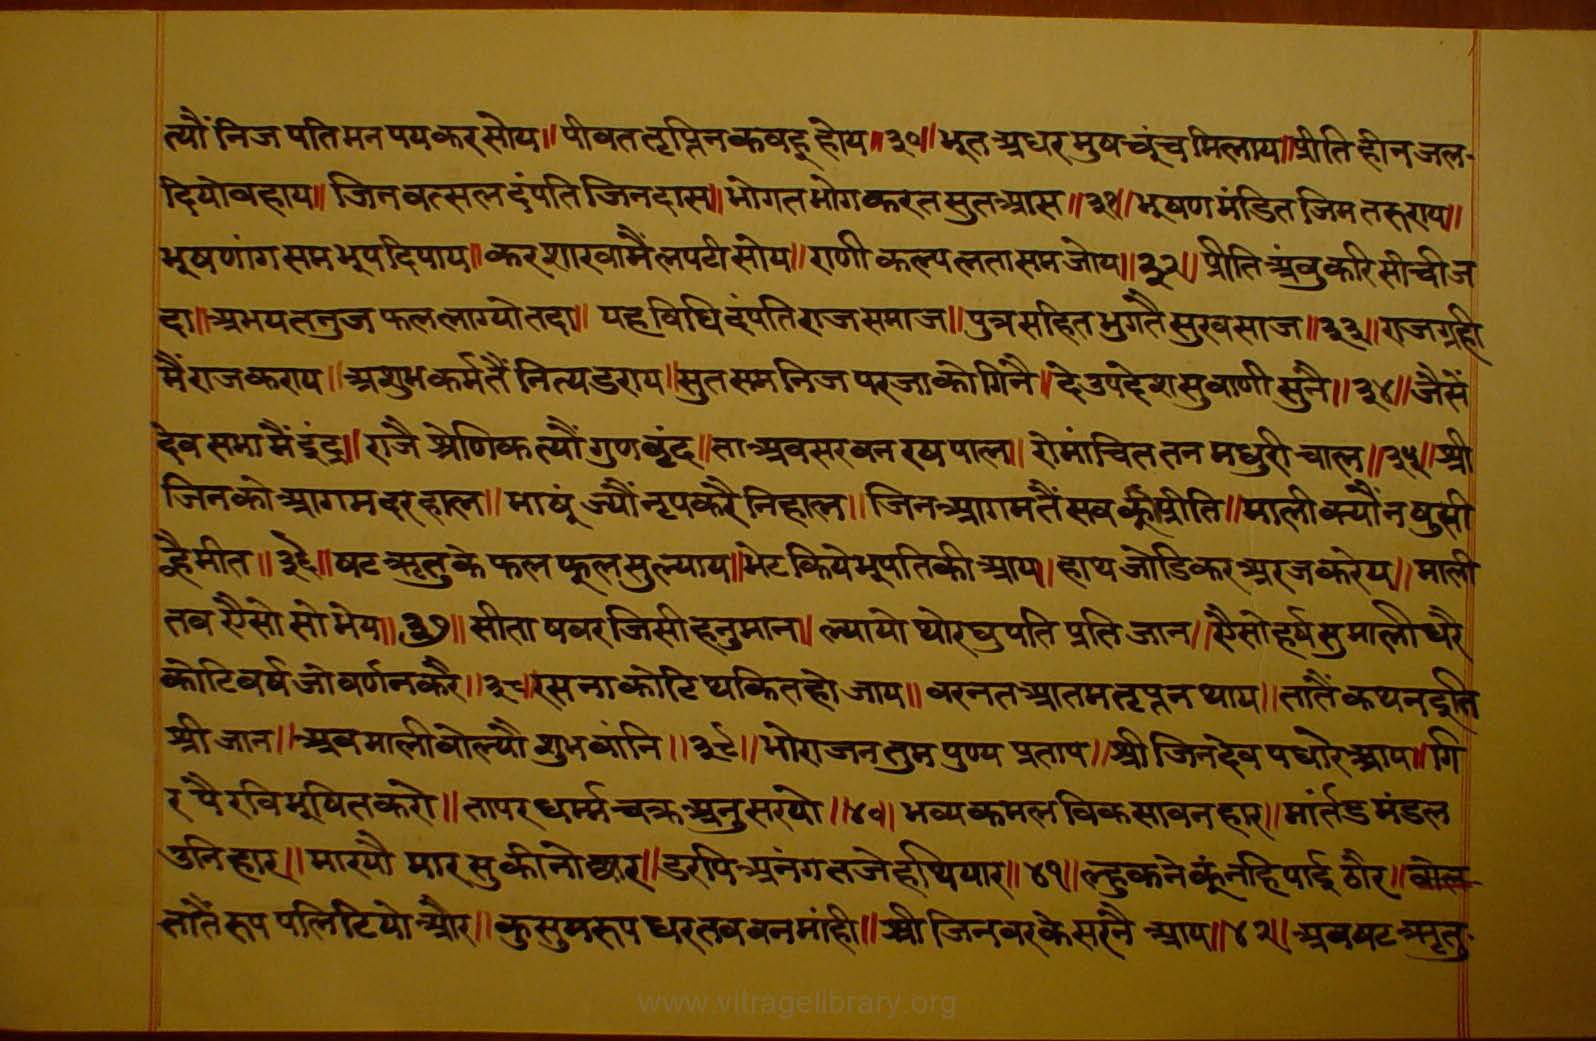 त्यौं निज पति मन पय कर सोय॥ पीवत तृप्ति न कवहू होय॥३०॥ भूत अधर मुष चूंच मिलाय॥ प्रीति हीन जल-
दियो वहाय॥ जिन वत्सल दंपति जिनदास॥ भोगत भोग करत सुत आस॥३१॥ भूषण मंडित जिम तरुराय॥
भूषणांग सम भूप दिपाय॥ कर शाखा मैं लपटी सोय॥ राणी कल्प लता सम जोय॥३२॥ प्रीति अंवु करि सींची ज
दा॥ अभय तनुज फल लाग्यो तदा॥ यह विधि दंपति राज समाज॥ पुत्र सहित भुगतै सुख साज॥३३॥ राजग्रही
मैं राज कराय॥ अशुभ कर्म तैं नित्य डराय॥ सुत सम निज परजा को गिनै॥ दे उपदेश सुवाणी सुनै॥३४॥ जैसें
देव सभा मैं इंद्र॥ राजै श्रेणिक त्यौं गुण वृंद॥ ता अवसर वन रष पाल॥ रोमांचित तन मधुरी चाल॥३५॥ श्री
जिन को आगम दर हाल॥ भाषूं ज्यौं नृप करै निहाल॥ जिन आगम तैं सव कूं प्रीति॥ माली क्यौं न षुसी
ह्वै मीत॥३६॥ षट ऋतु के फल फूल सु ल्याय॥ भेट किये भूपति की आय॥ हाथ जोडि कर अरज करेय॥ माली
तव ऐसो सो भेय॥३७॥ सीता षवर जिसी हनुमान॥ ल्यायो थो रघुपति प्रति जान॥ ऐसो हर्ष सु माली धरै
कोटि वर्ष जो वर्णन करै॥३८॥ रसना कोटि थकित हो जाय॥ वरनत आतम तृप्त न थाय॥ तातैं कथन इति
श्री जान॥ अव माली वोल्यौ शुभ वांनि॥३९॥ भो राजन तुम पुण्य प्रताप॥ श्री जिनदेव पधारे आप॥ गि
र पै रवि भूषित करो॥ तापर धर्म्म चक्र अनुसरयो॥४०॥ भव्य कमल विकसावन हार॥ मांर्तड मंडल
उनिहार॥ मारयौ मार सु कीनो छार॥ डरपि अनंग तजे हथियार॥४१॥ ल्हुकने कूं नहि पाई ठौर॥
तातैं रूप पलिटियो और॥ कुसुम रूप धर तव वन मांही॥ श्री जिनवर के सरनै आय॥४२॥ अव षट ऋतु-
www.vitragelibrary.org